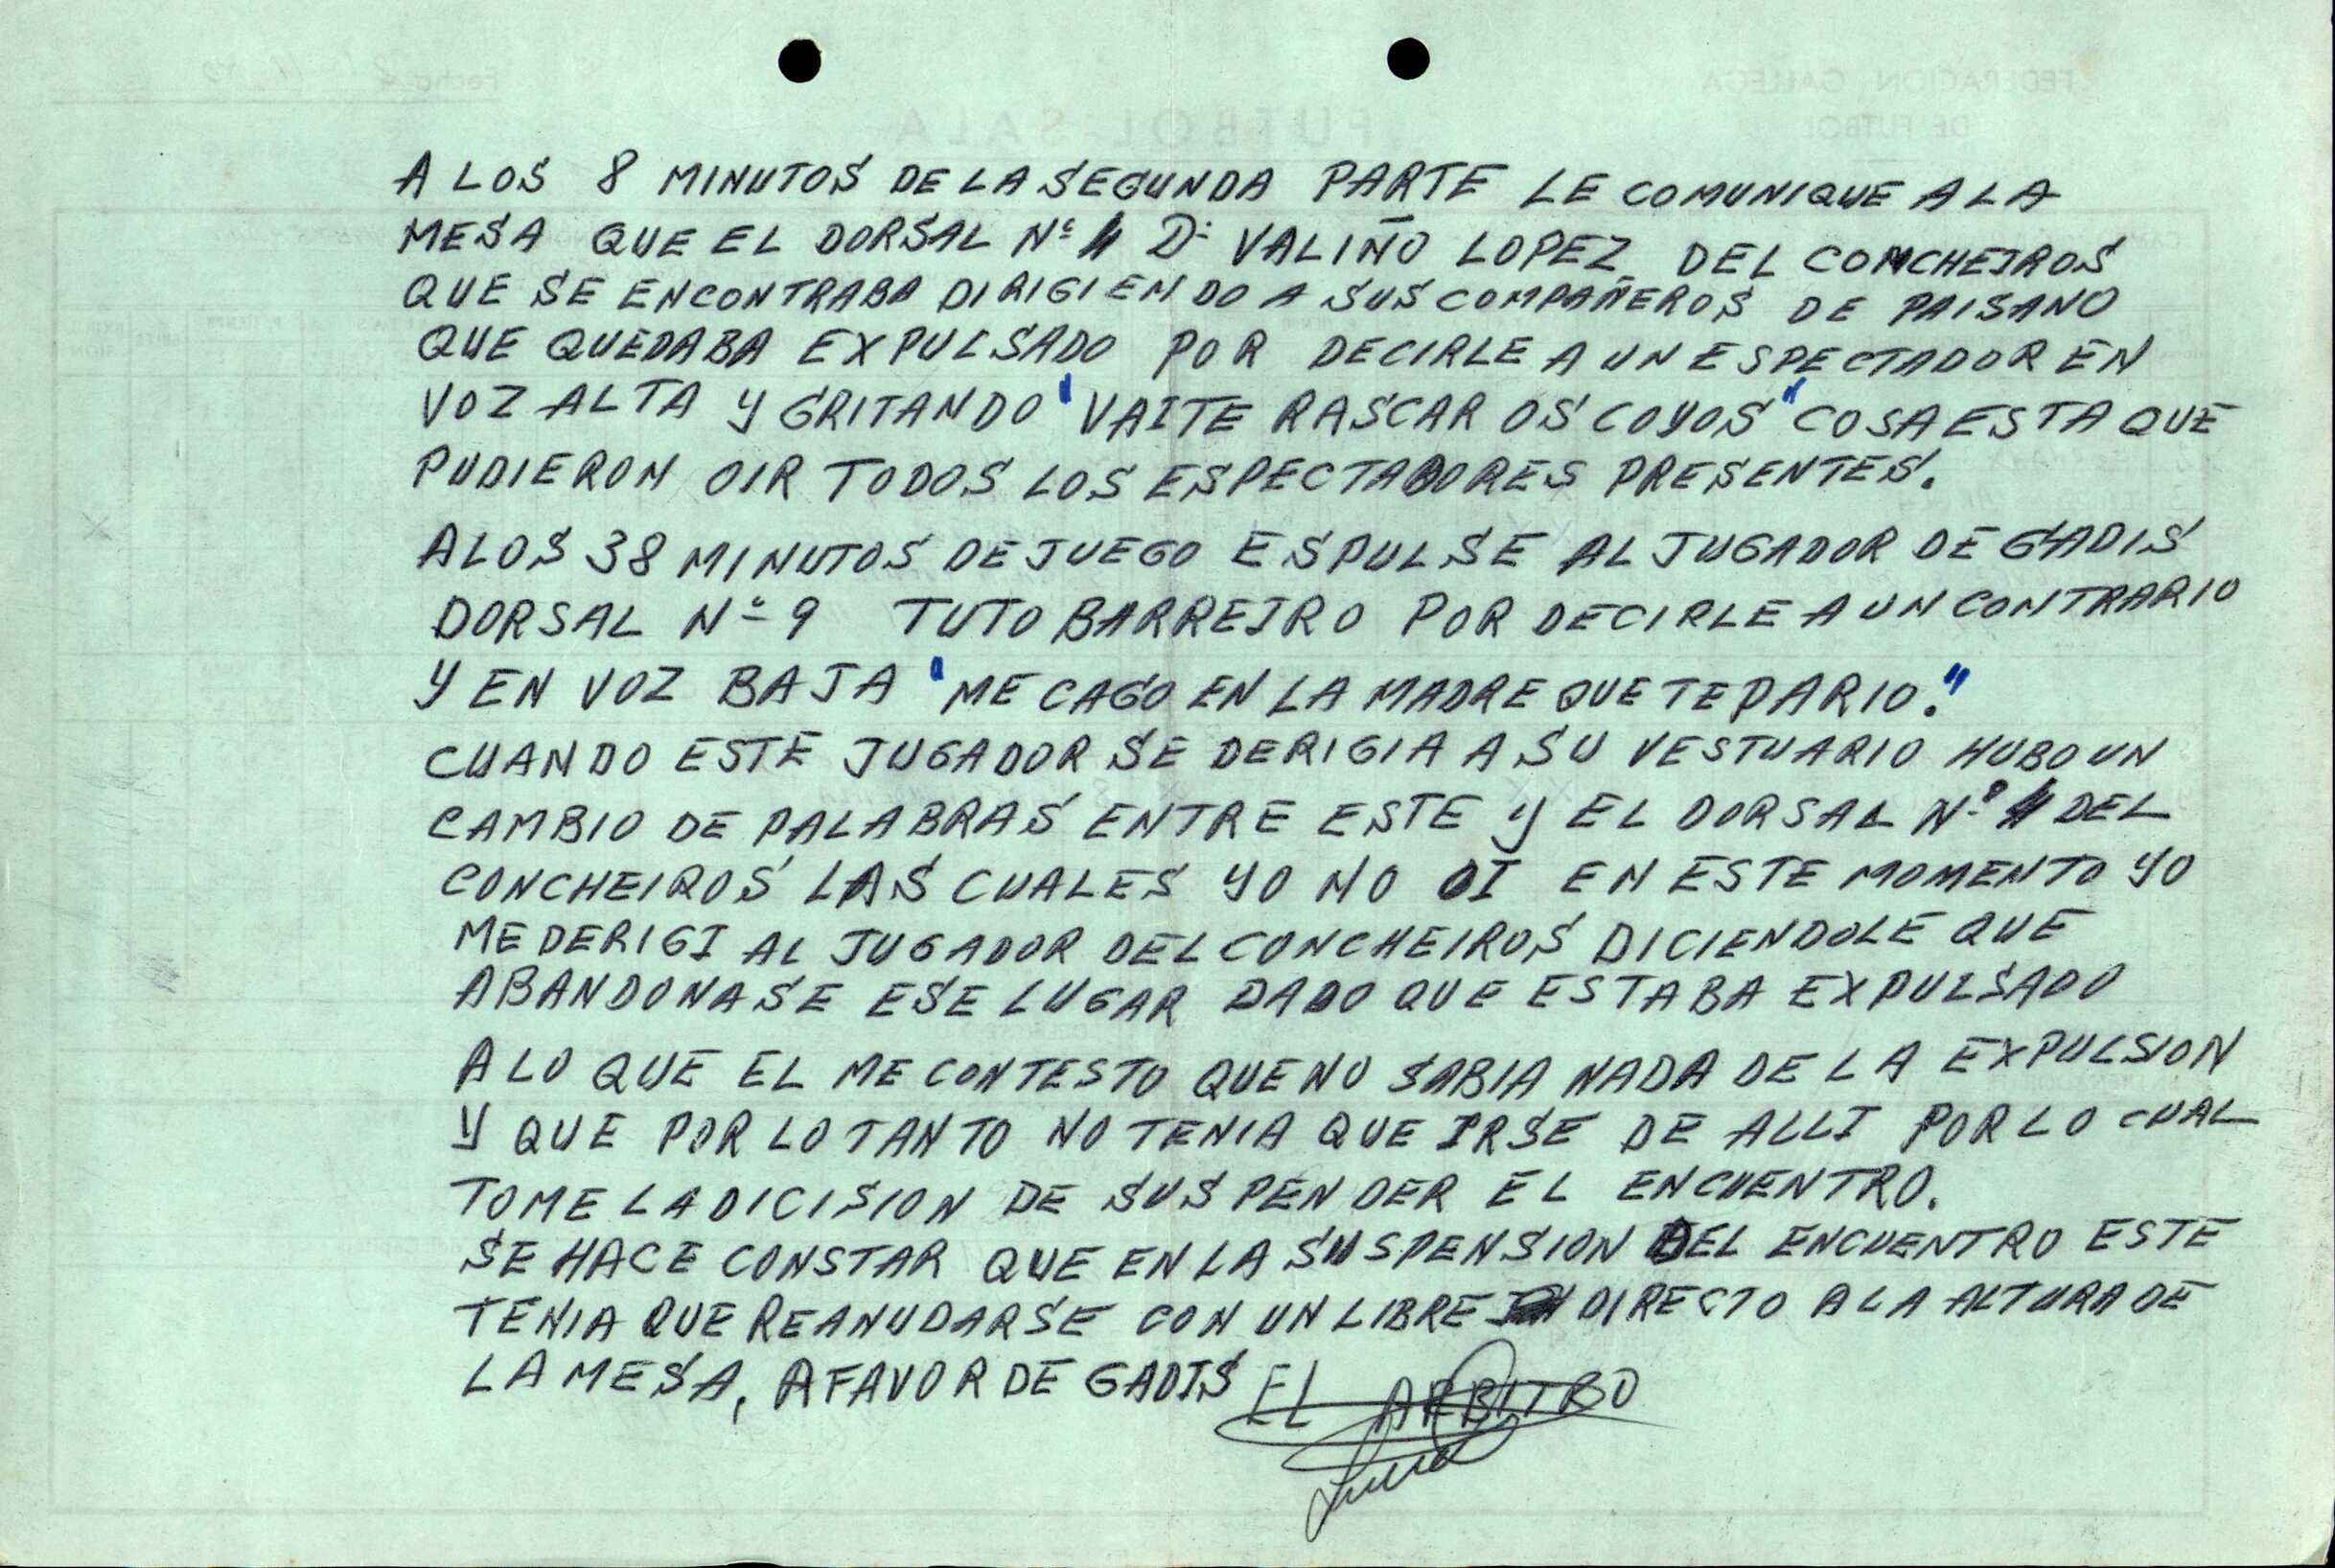 A LOS 8 MINUTOS DE LA SEGUNDA PARTE LE COMUNIQUE A LA
MESA QUE EL DORSAL Nº 4 D. VALIÑO LOPEZ DEL CONCHEIROS
QUE SE ENCONTRABA DIRIGIENDO A SUS COMPAÑEROS DE PAISANO
QUE QUEDABA EXPULSADO POR DECIRLE A UN ESPECTADOR EN
VOZ ALTA Y GRITANDO "VAITE RASCAR OS COYOS" COSA ESTA QUE
PUDIERON OIR TODOS LOS ESPECTADORES PRESENTES.
A LOS 38 MINUTOS DE JUEGO ESPULSE AL JUGADOR DE GADIS
DORSAL Nº 9 TUTO BARREIRO POR DECIRLE A UN CONTRARIO
Y EN VOZ BAJA "ME CAGO EN LA MADRE QUE TE PARIO."
CUANDO ESTE JUGADOR SE DERIGIA A SU VESTUARIO HUBO UN
CAMBIO DE PALABRAS ENTRE ESTE Y EL DORSAL Nº 4 DEL
CONCHEIROS LAS CUALES YO NO OI EN ESTE MOMENTO YO
ME DERIGI AL JUGADOR DEL CONCHEIROS DICIENDOLE QUE
ABANDONASE ESE LUGAR DADO QUE ESTABA EXPULSADO
A LO QUE EL ME CONTESTO QUE NO SABIA NADA DE LA EXPULSION
Y QUE POR LO TANTO NO TENIA QUE IRSE DE ALLI POR LO CUAL
TOME LA DICISION DE SUSPENDER EL ENCUENTRO.
SE HACE CONSTAR QUE EN LA SUSPENSION DEL ENCUENTRO ESTE
TENIA QUE REANUDARSE CON UN LIBRE DIRECTO A LA ALTURA DE
LA MESA, A FAVOR DE GADIS EL ARBITRO